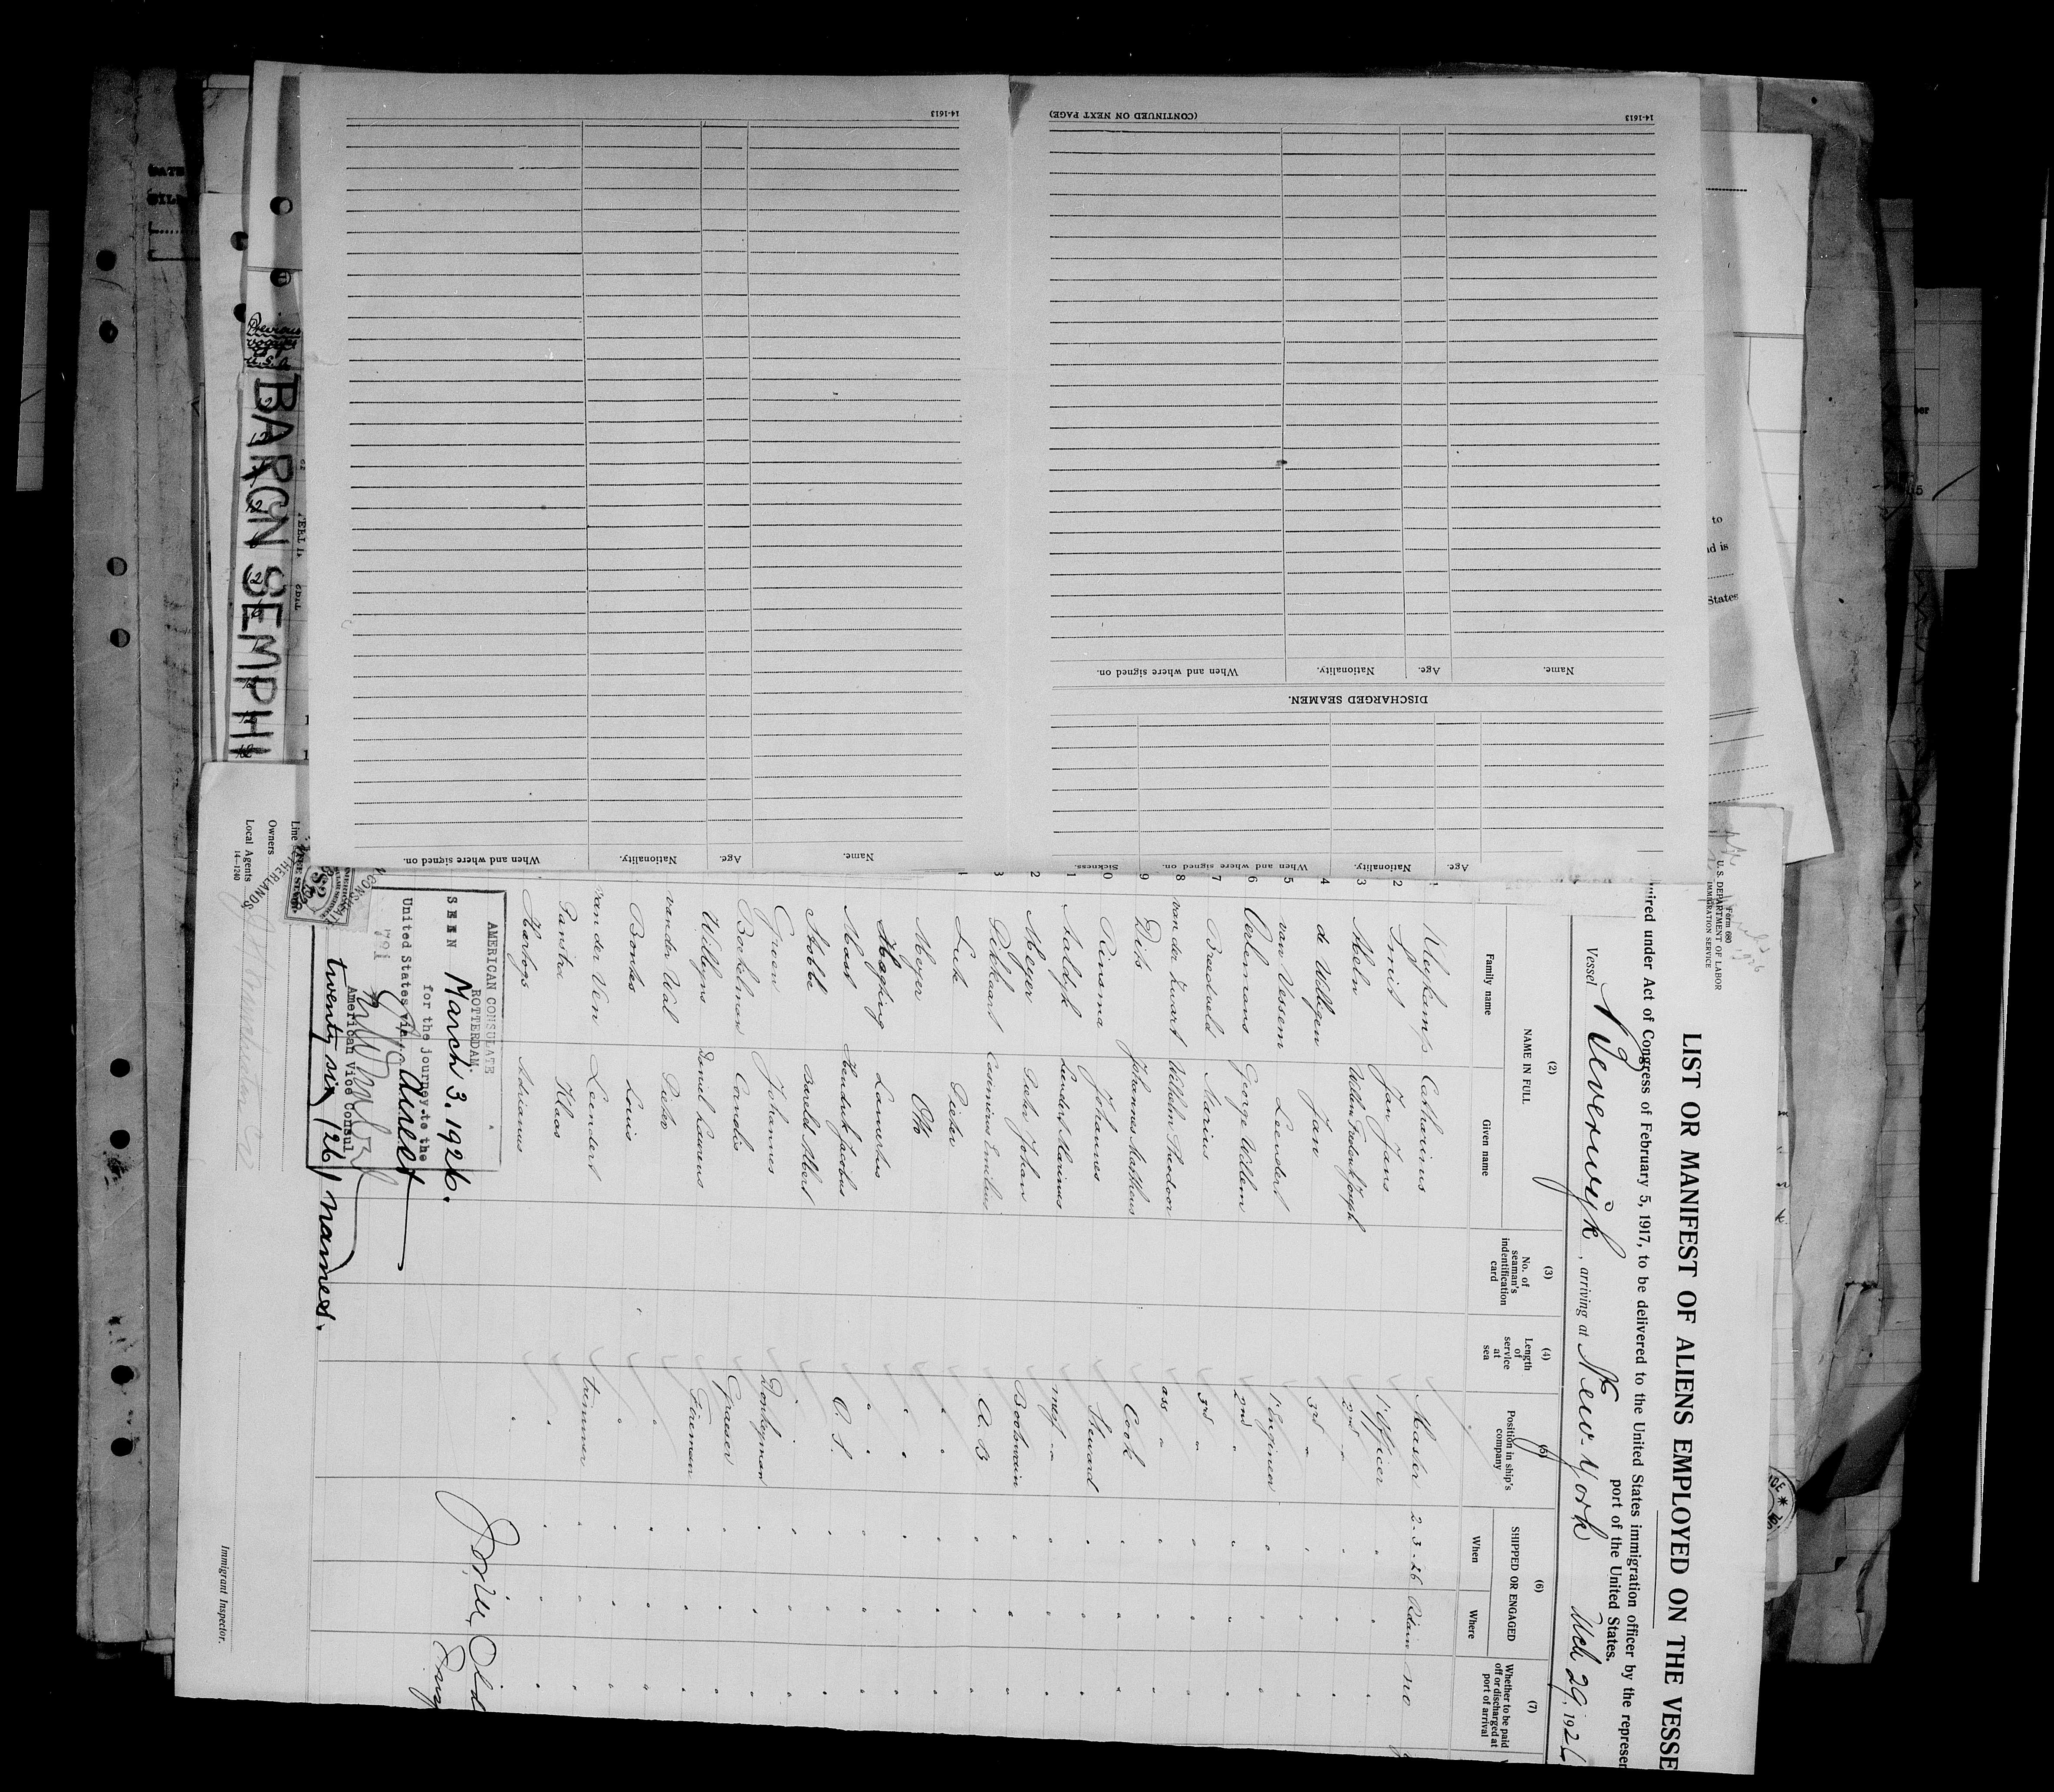 14-1613
(CONTINUED ON NEXT PAGE)
14-1613
Name. Age. Nationality. When and where signed on.
DISCHARGED SEAMEN.
Age. Nationality. When and where signed on. Sickness.
Name. Age. Nationality. When and where signed on.
Previous
voyages
U.S.A.
BARON SEMPH
to
nd is
States
Form 680
U. S. DEPARTMENT OF LABOR
IMMIGRATION SERVICE
LIST OR MANIFEST OF ALIENS EMPLOYED ON THE VESSE
uired under Act of Congress of February 5, 1917, to be delivered to the United States immigration officer by the represen
port of the United States.
Vessel Beverwijk, arriving at New-York Mch 29, 1926
(2) (3) (4) (5) (6) (7)
NAME IN FULL
Family name Given name
No. of seaman's indentification card
Length of service at sea
Position in ship's company
SHIPPED OR ENGAGED
When Where
Whether to be paid off or discharged at port of arrival
1 Wijkamps Catharinus Master 2-3-26 Rdam no
2 Smit Jan Jans 1' officer " " "
3 Meln Willem Frederik Joseph 2nd " " " "
4 de Willigen Jan 3rd " " " "
5 van Vessem Leendert 1' Engineer " " "
6 Oerlemans George Willem 2nd " " " "
7 Breedveld Marius 3rd " " " "
8 van der Zwart Wilhelm Theodoor ass " " " "
9 Dits Johannes Mattheus Cook " " "
0 Rinsma Johannes Steward " " "
1 Aaldijk Leendert Marinus mess " " "
2 Meijer Pieter Johan Boatswain " " "
3 Pikkaart Casimirus Emilius A. B " " "
Luke Pieter " " " "
Meyer Otto " " " "
Heghing Lamertus " " " "
Mast Hendrik Jacobus O. S. " " "
Stobbe Bareld Albert " " " "
Groen Johannes Donkeyman " " "
Bockelman Cornelis Greaser " " "
Willeyns Daniel Laurens Fireman " " "
van der Wal Pieter " " " "
Bonks Louis " " " "
van der Ven Leendert trimmer " " "
Panstra Klaas " " " "
Hartogs Adrianus " " " "
AMERICAN CONSULATE
ROTTERDAM.
SEEN March 3. 1926.
for the journey to the
United States via direct
American Vice Consul
twenty six (26) names.
Line
Owners
Local Agents
14-1240
Immigrant Inspector.